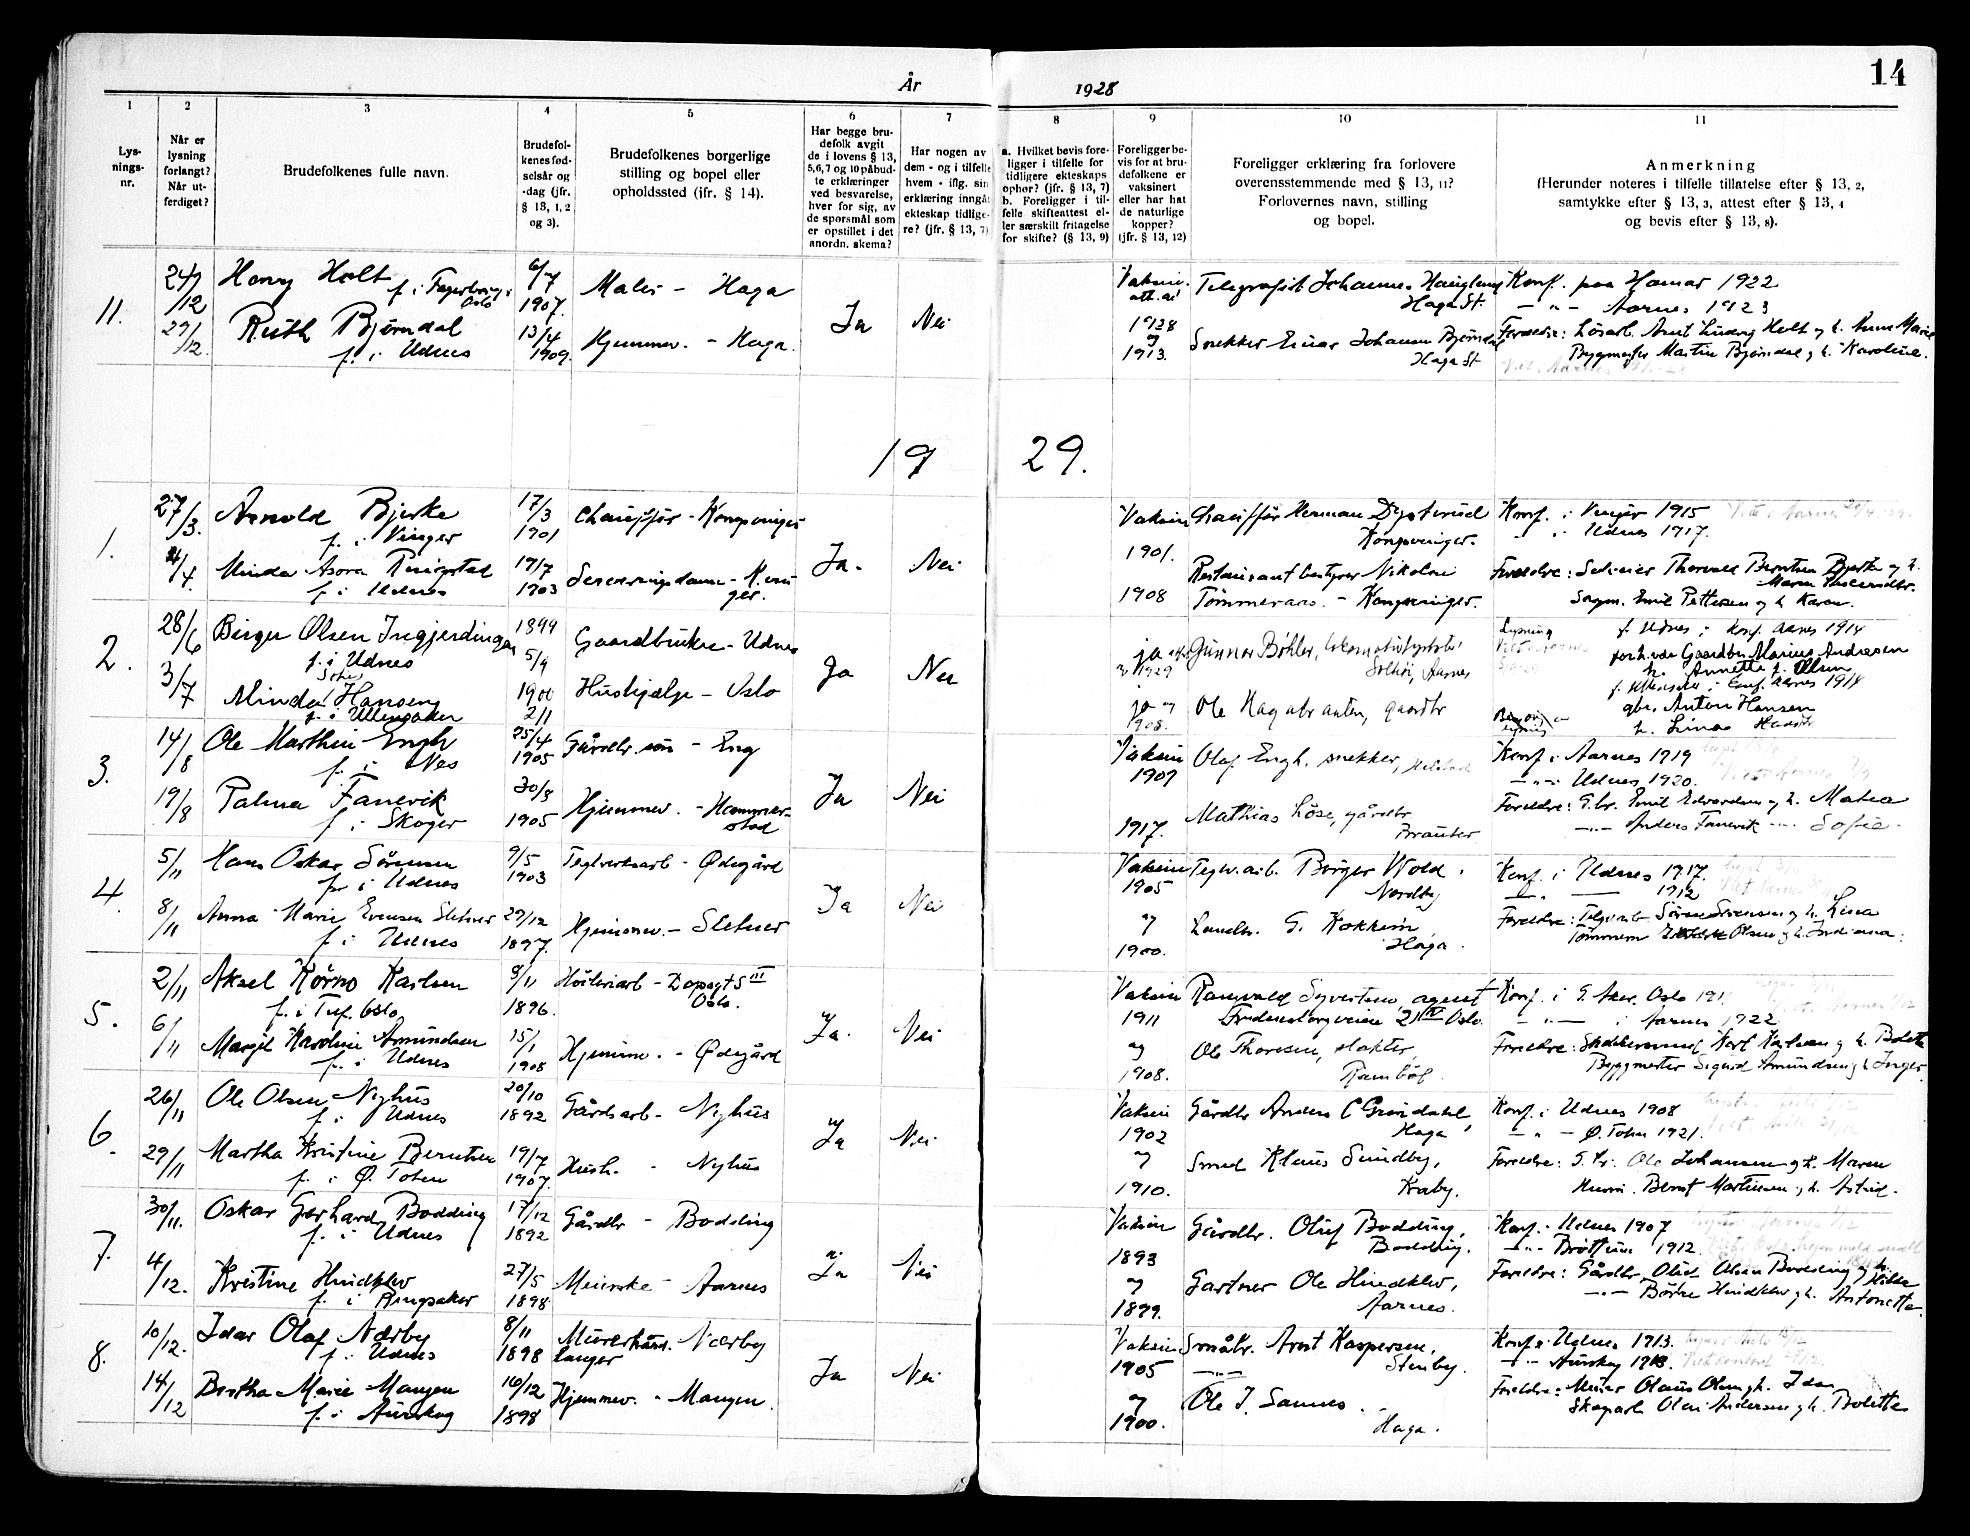 14
År 1928
1 2 3 4 5 6 7 8 9 10 11
Lys-
nings-
nr.
Når er
lysning
forlangt?
Når ut-
ferdiget?
Brudefolkenes fulle navn.
Brudefol-
kenes fød-
selsår og
-dag (jfr.
§ 13, 1, 2
og 3).
Brudefolkenes borgerlige
stilling og bopel eller
opholdssted (jfr. § 14).
Har begge bru-
defolk avgit
de i lovens § 13,
5, 6, 7 og 10 påbud-
te erklæringer
ved besvarelse,
hver for sig, av
de spørsmål som
er opstillet i det
anordn. skema?
Har nogen av
dem - og i tilfelle
hvem - iflg. sin
erklæring inngåt
ekteskap tidlige-
re? (jfr. § 13, 7)
a. Hvilket bevis fore-
ligger i tilfelle for
tidligere ekteskaps
ophør? (jfr. § 13, 7)
b. Foreligger i til-
felle skifteattest el-
ler særskilt fritagelse
for skifte? (§ 13, 9)
Foreligger be-
vis for at bru-
defolkene er
vaksinert
eller har hat
de naturlige
kopper?
(jfr. § 13, 12)
Foreligger erklæring fra forlovere
overensstemmende med § 13, 11?
Forlovernes navn, stilling
og bopel.
Anmerkning
(Herunder noteres i tilfelle tillatelse efter § 13, 2,
samtykke efter § 13, 3, attest efter § 13, 4
og bevis efter § 13, 8).
11.
24/12
29/12.
Henry Holt f. i Fagerborg,
Oslo
Ruth Bjørndal
f. i Udnes
6/7
1907.
13/4
1909.
Maler - Haga
Hjemmev. - Haga.
Ja
Nei
Vaksin.
1928
og
1913.
Telegrafist Johannes
Haga St.
Snekker Einar Johannes Bjørndal
Haga St
Konf. paa Hamar 1922
- " - Aarnes 1923
Foreldre: Løsarb. Arnt Ludvig Holt og h. Anna Marie
Bygmester Martin Bjørndal og h. Karoline.
1929.
1.
27/3.
4/4
Arnold Bjerke
f. i Vinger
Minda Asora Ringstad
f. i Udnes
17/3
1901
19/7
1903
Chauffør - Kongsvinger
Serveringsdame - K.vin
ger.
Ja.
Nei
Vaksin
1901.
1908
Chauffør Herman Dysterud
Kongsvinger.
Restaurant bestyrer Nikolai
Tømmeraas. - Kongsvinger.
Konf. i Vinger 1915
" i Udnes 1917.
Foreldre: Thorvald Berntsen Bjerke og h.
Maren
Sagm. Emil Pettersen og h Karen.
2.
28/6
3/7
Birger Olsen Ingjerdingen
f. i Udnes
Minda Hansen
f. i Ullensaker
1899
5/9
1900
2/1
Gaardbruker - Udnes
Hushjelp - Oslo
Ja
Nei
ja
1929
ja og
1908.
Gunnar Bøhler,
Solhøi, Aarnes
Ole Hagabraaten, gaardbr
Lysning
f. Udnes i konf. Aarnes 1914
Gaardbr. Marius Andresen
h. Annette f. Olsen
f. Ullensaker i konf. Aarnes 1914
gbr. Anton Hansen
h. Lina
3.
14/8
19/8
Ole Marthin Engh
f. i Nes
Palma Fanevik
f. i Skoger
25/4
1905
30/8
1905
Gårdbr. søn - Eng
Hjemmev. - Hammer-
stad
Ja
Nei
Vaksin
1907
1917.
Olaf Engh. snekker,
Mathias Løse, gårdbr.
Konf. i Aarnes 1919
- " - i Udnes 1920.
Foreldre: G.br. Emil Edvardsen og h. Matea
- " - Anders Fanevik - " - Sofie.
4.
5/11
8/11
Hans Oskar Sörensen
f. i Udnes
Anna Marie Evensen Sletner
f. i Udnes
9/5
1903
29/12
1897.
Teglverksarb - Ödegård
Hjemmev. - Sletner
Ja
Nei
Vaksin
1905
og
1900.
Teglv.arb. Birger Wold.
Nordby
Landh. G. Kokheim
Haga.
Konf. i Udnes 1917.
" 1912
Foreldre: Teglv.arb Sören Sörensen og h. Lina
Tømmerm Olsen og h. Indiana.
5.
2/11
6/11
Aksel Kørno Karlsen
f. i Tuf. Oslo
Margit Karoline Amundsen
f. i Udnes
9/11
1896.
15/1
1908
- Dopsgt 5 III
Oslo.
Hjemmev. - Ödegård
Ja.
Nei
Vaksin
1911
og
1908.
Ragnvald Syvertsen, agent
21 IV Oslo.
Ole Thoresen, slakter,
Rambøl.
Konf. i G. Aker. Oslo 191
- " - i Aarnes 1922
Foreldre: Karl Karlsen og h. Bolette
Byggmester Sigurd Amundsen og h Inger.
6.
26/11
29/11
Ole Olsen Nyhus
f. i Udnes
Martha Kristine Berntsen
f. i Ø. Toten
20/10
1892
19/7
1907.
Gårdsarb - Nyhus
Hush. - Nyhus
Ja
Nei
Vaksin
1902
og
1910.
Gårdbr Anders C Gröndahl,
Haga
Smed Klaus Sundby,
Kraby.
Konf. i Udnes 1908
- " - Ø. Toten 1921.
Foreldre: G. br. Ole Johansen og h. Maren
Husm. Bernt Martinsen og h. Astrid.
7.
30/11.
4/12.
Oskar Gerhard Bodding
f. i Udnes
Kristine Hindklev
f. i Ringsaker
17/12
1892
27/5
1898
Gårdbr - Bodding
Meierske - Aarnes
Ja
Nei
Vaksin
1893
og
1899.
Gårdbr. Oluf Bodding,
Bodding.
Gartner Ole Hindklev,
Aarnes.
Konf. i Udnes 1907
- " - Brøttum 1912.
Foreldre: Gårdbr. Oluf Olsen Bodding og h. Hilda
- " - Hindklev og h. Antonette.
8.
10/12.
14/12
Idar Olaf Nærby
f. i Udnes
Bertha Marie Mangen
f. i Aurskog
8/11
1898
16/12
1898
Murerhånd. Nærby
langer
Hjemmev. - Mangen.
Ja
Nei
Vaksin
1905
og
1900.
Småbr. Arnt Kaspersen,
Stenby.
- " -
Ole J. Sannes.
Haga.
Konf. i Udnes 1913.
- " - Aurskog 1913.
Foreldre: Murer Olaus Olsen og h. Ida
Skogarb Olai Andersen og h. Bolette